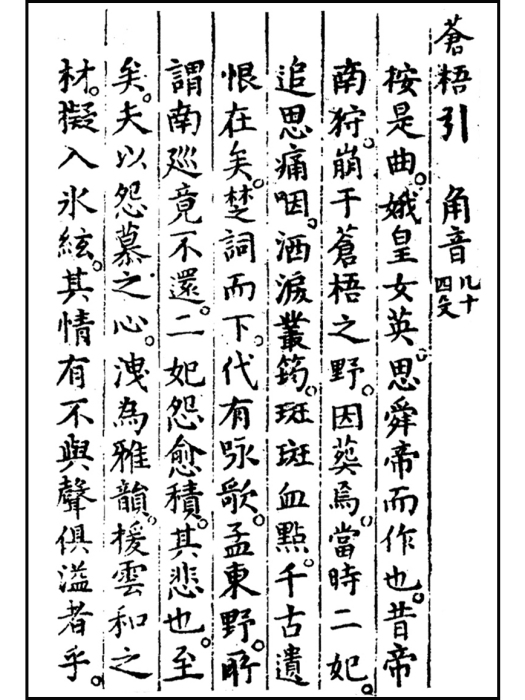 蒼梧引 角音 凡十四文
按是曲。娥皇女英。思舜帝而作也。昔帝
南狩。崩于蒼梧之野。因葬焉。當時二妃。
追思痛咽。洒淚叢筠。斑斑血點。千古遺
恨在矣。楚詞而下。代有咏歌。孟東野。所
謂南廵竟不還。二妃怨愈積。其悲也。至
矣。夫以怨慕之心。洩為雅韻。援雲和之
材。擬入氷絃。其情有不與聲俱溢者乎。